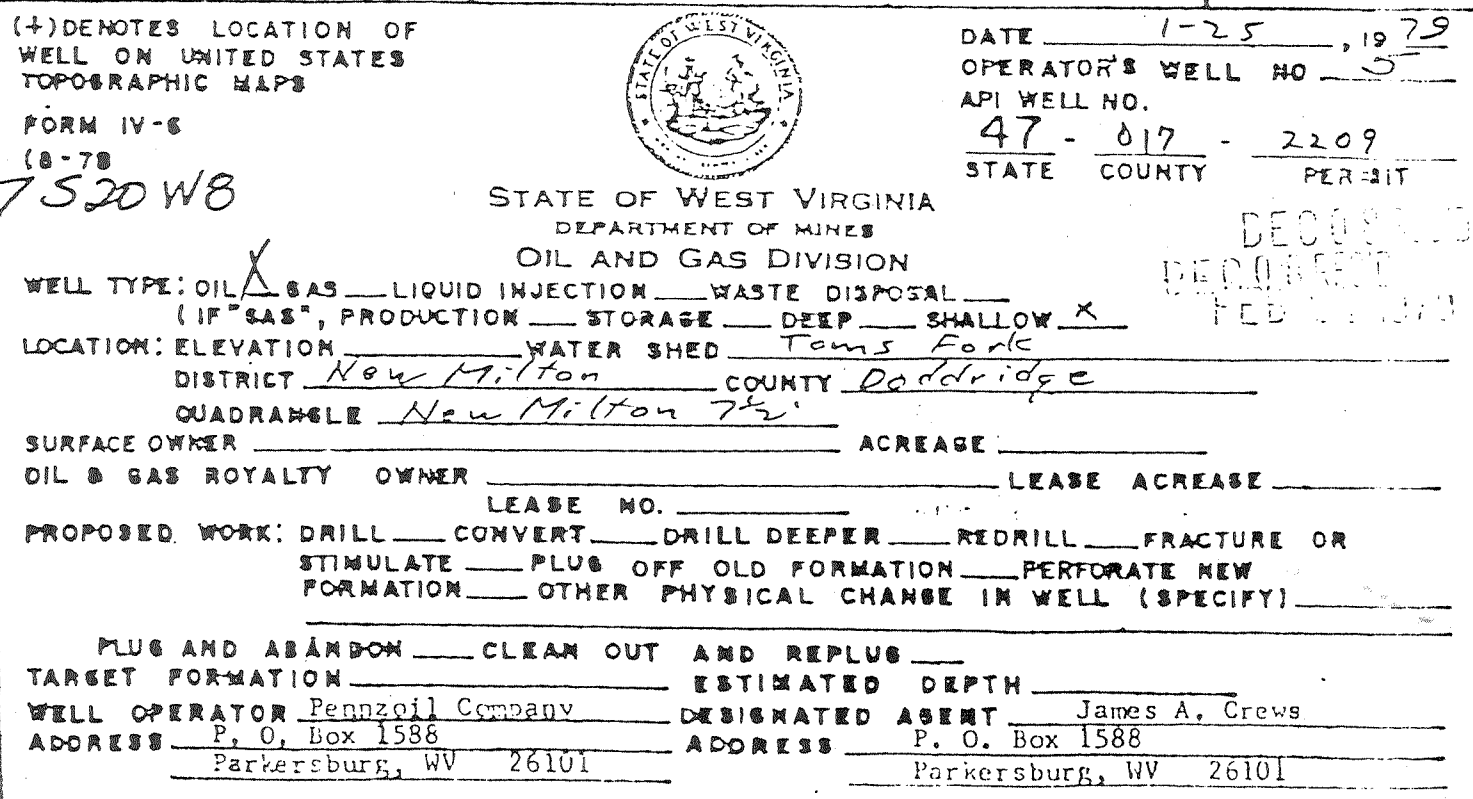 (+) DENOTES LOCATION OF
WELL ON UNITED STATES
TOPOGRAPHIC MAPS
FORM IV-6
(8-78
7520 W8
STATE OF WEST VIRGINIA
DATE 1-25, 19 79
OPERATOR'S WELL NO 5
API WELL NO.
47 - 017 - 2209
STATE COUNTY PERMIT
STATE OF WEST VIRGINIA
DEPARTMENT OF MINES
OIL AND GAS DIVISION
WELL TYPE: OIL X GAS ___ LIQUID INJECTION ___ WASTE DISPOSAL ___
(IF "GAS", PRODUCTION ___ STORAGE ___ DEEP ___ SHALLOW X
LOCATION: ELEVATION ___ WATER SHED Toms Fork
DISTRICT New Milton COUNTY Doddridge
QUADRANGLE New Milton 7½'
SURFACE OWNER ___ ACREAGE ___
OIL & GAS ROYALTY OWNER ___ LEASE ACREAGE ___
LEASE NO. ___
PROPOSED WORK: DRILL ___ CONVERT ___ DRILL DEEPER ___ REDRILL ___ FRACTURE OR
STIMULATE ___ PLUG OFF OLD FORMATION ___ PERFORATE NEW
FORMATION ___ OTHER PHYSICAL CHANGE IN WELL (SPECIFY) ___
PLUG AND ABANDON ___ CLEAN OUT AND REPLUG ___
TARGET FORMATION ___ ESTIMATED DEPTH ___
WELL OPERATOR Pennzoil Company DESIGNATED AGENT James A. Crews
ADDRESS P. O. Box 1588 ADDRESS P. O. Box 1588
Parkersburg, WV 26101 Parkersburg, WV 26101